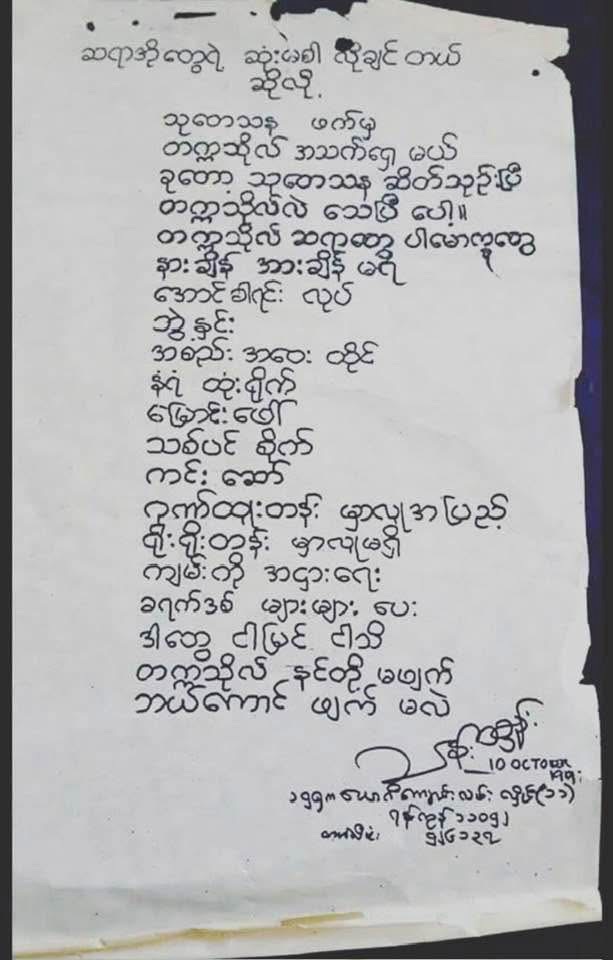 ဆရာအိုတွေရဲ့ ဆုံးမစါ လိုချင်တယ်
ဆိုလို့
သုဏသန ဖက်မှ
တက္ကသိုလ် အသက်ရှေ မယ်
ခုတော့ သုတေသန ဆိတ်သုဉ်းပြီ
တက္ကသိုလ်လဲ သေပြီ ပေါ့။
တက္ကသိုလ် ဆရာတွေ ပါမောက္ခတွေ
နားချိန် အားချိန် မရဲ
အောင်ခါရင်း လုပ်
ဘွဲ့နှင်း
အစည်း အဝေး ထိုင်
နံရံ ထုံးရိုက်
မြောင်းဖေါ်
သစ်ပင် စိုက်
ကင်း ဆော်
ဂုဏ်ထူးတန်း မှာလူအပြည့်
ရိုးရိုးတန်း မှာလူမရှိ
ကျမ်းကို အငှားရေး
ခရက်ဒစ် များများ ပေး
ဒါတွေ ငါမြင် ငါသိ
တက္ကသိုလ် နင်တို့ မဖျက်
ဘယ်ကောင် ဖျက် မလဲ
10 OCTOBER
လမ်း လှိုင်(၁၁)
ရန်ကုန် ၁၁၀၅၂